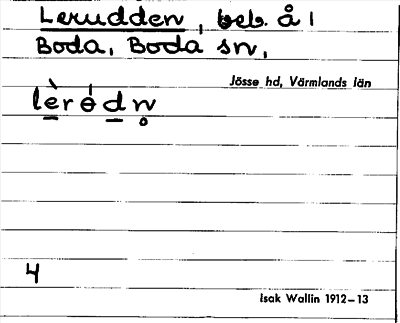 Lerudden, beb. å 1
Boda, Boda sn,
Jösse hd, Värmlands län
4
Isak Wallin 1912–13